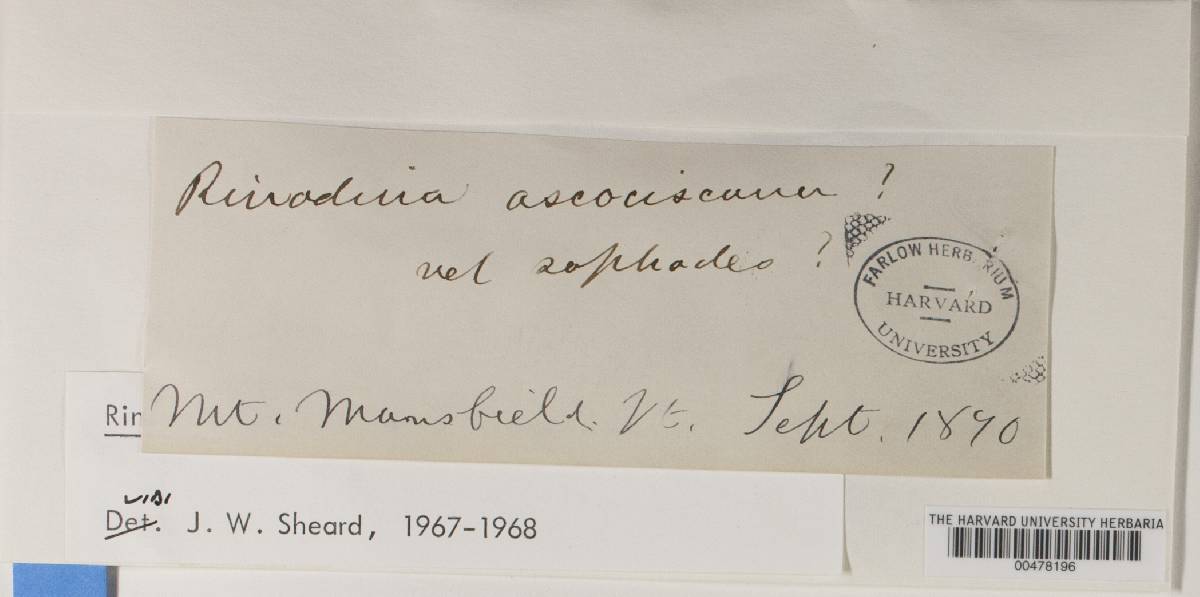 Rinodina ascociscana ?
vel sophodes ?
FARLOW HERBARIUM
HARVARD
UNIVERSITY
Mt. Mansfield. Vt. Sept. 1890
Rin
vidi
Det. J. W. Sheard, 1967-1968
THE HARVARD UNIVERSITY HERBARIA
00478196